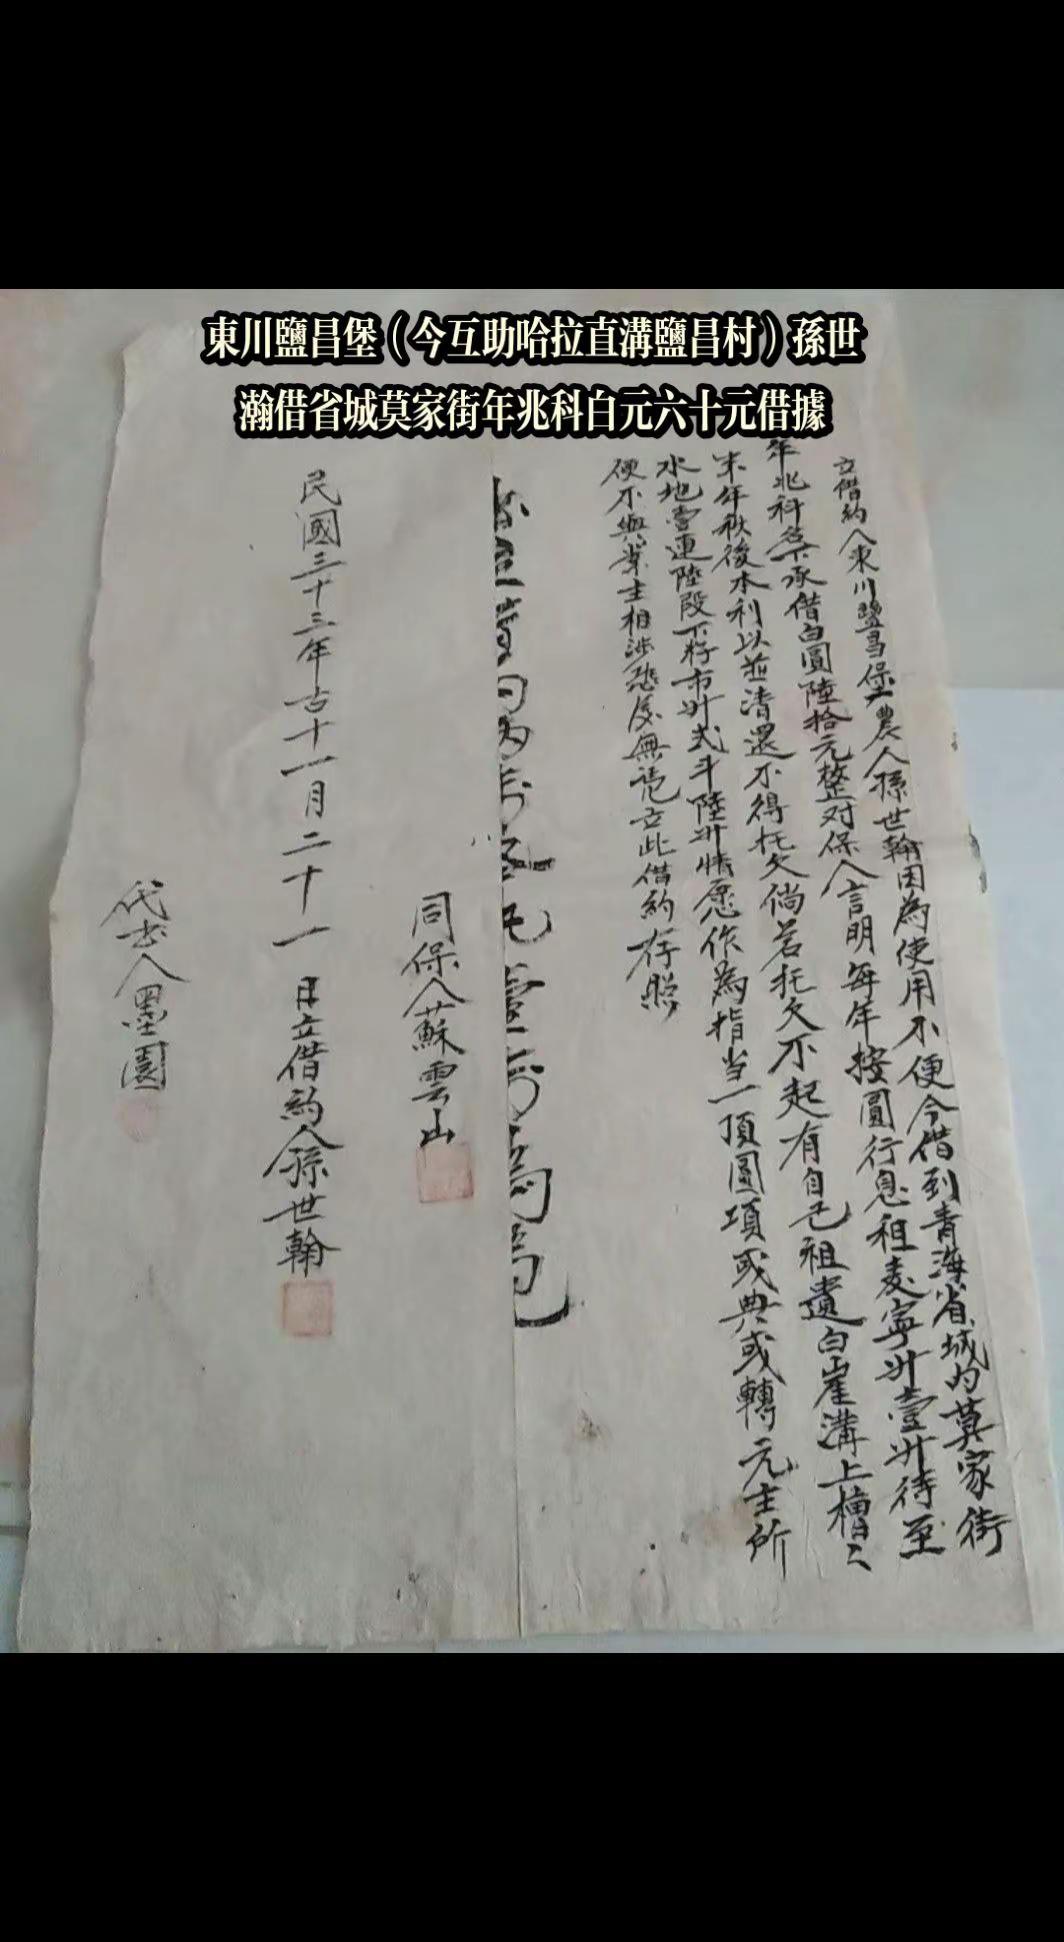 東川鹽昌堡（今互助哈拉直溝鹽昌村）孫世
瀚借省城莫家街年兆科白元六十元借據
立借約人東川鹽昌堡農人孫世翰因為使用不便今借到青海省城内莫家街
年兆科名下承借白圓陸拾元整对保人言明每年按圓行息租麦寧升壹升待至
来年秋後本利以並清還不得托欠倘若托欠不起有自己祖遺白崖溝上槽
水地壹連陸段下籽市升弍斗陸升情愿作為指当一頂圓項或典或轉元主所
便不與業主相涉恐後無凭立此借約存照
同保人蘇雲山
民國三十三年古十一月二十一日立借約人孫世翰
代书人墨園